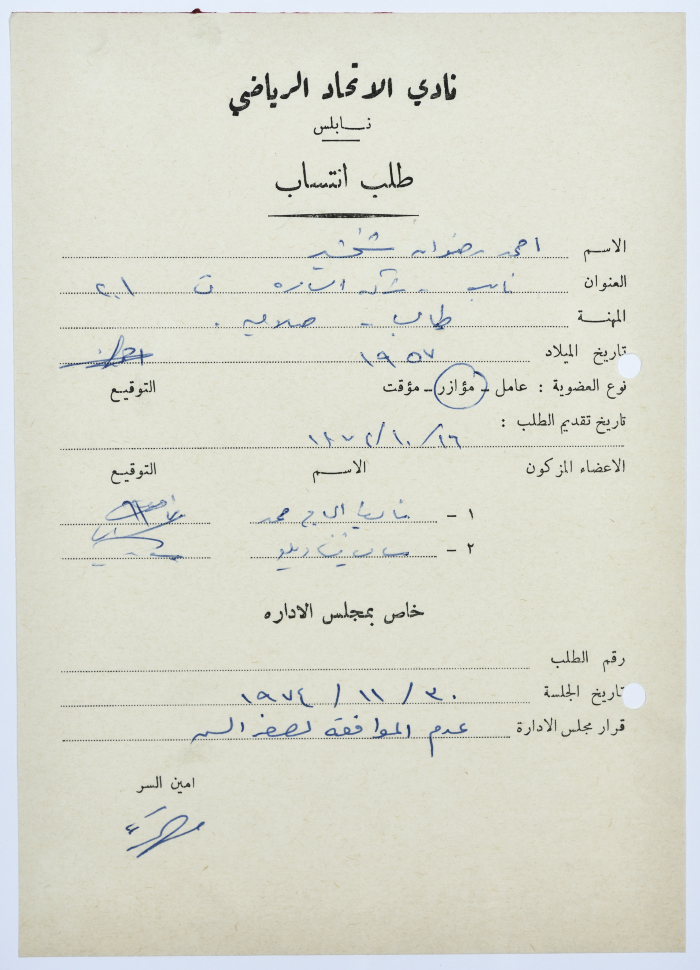 نادي الاتحاد الرياضي
نابلس
طلب انتساب
الاسم احمد رضوان شخشير
العنوان نابلس - شركة السيارة ت ٢٠١
المهنة طالب -
تاريخ الميلاد ١٩٥٧
نوع العضوية : عامل - مؤازر - مؤقت التوقيع
تاريخ تقديم الطلب :
١٩٧٤/١٠/٢٦
الاعضاء المزكون الاسم التوقيع
١ - الحاج محمد
٢ -
خاص بمجلس الاداره
رقم الطلب
تاريخ الجلسة ٣٠ / ١١ / ١٩٧٤
قرار مجلس الادارة عدم الموافقة لصغر السن
امين السر